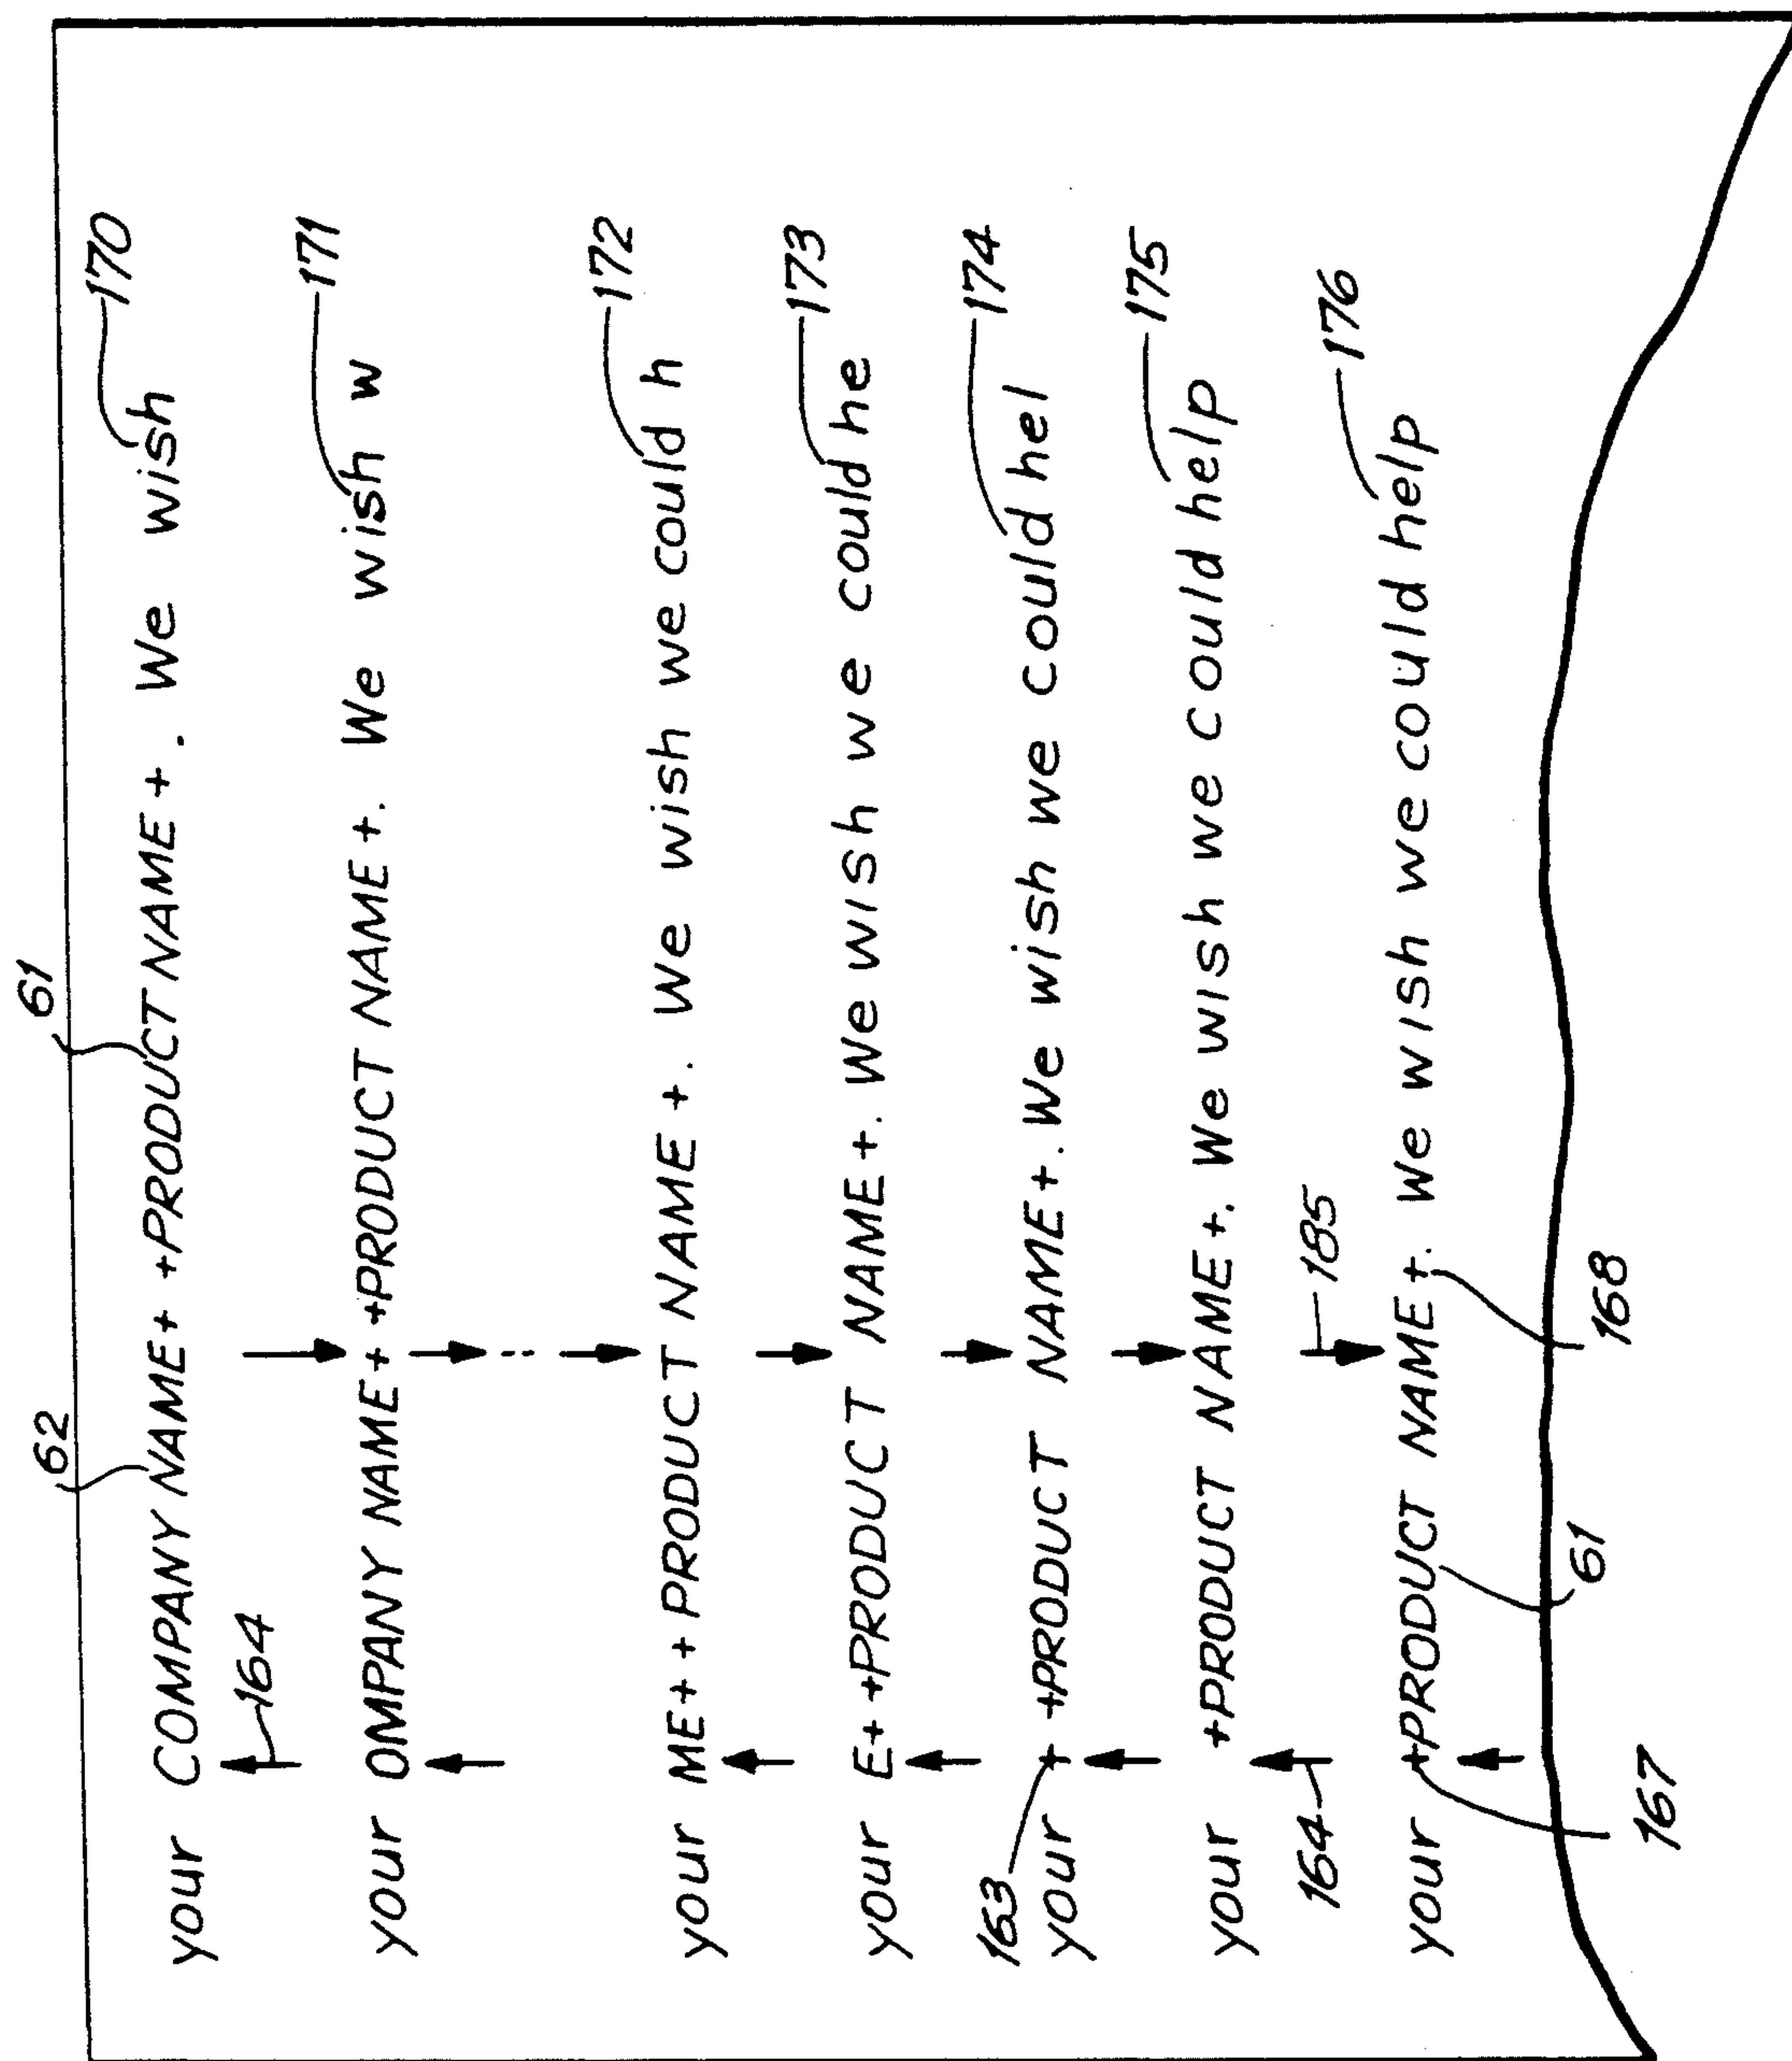 62 61
your COMPANY NAME+ +PRODUCT NAME+. We wish 170
164
your OMPANY NAME+ +PRODUCT NAME+. We wish w 171
your ME+ +PRODUCT NAME+. We wish we could h 172
your E+ +PRODUCT NAME+. We wish we could he 173
163
your + +PRODUCT NAME+. We wish we could hel 174
your +PRODUCT NAME+. We wish we could help 175
164 185
your +PRODUCT NAME+. We wish we could help 176
167 61 168